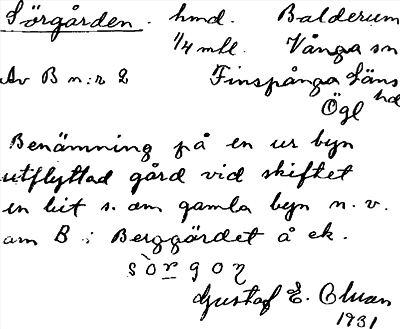 Sörgården. hmd. Balderum
1/4 mtl. Vånga sn
Av B n:r 2 Finspånga Läns
hd
Ögl
Benämning på en ur byn
utflyttad gård vid skiftet
en bit s. om gamla byn n. v.
om B i Berggärdet å ek.
Gustaf E.
1931